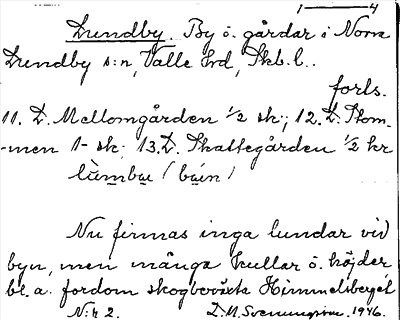 1 — 4
Lundby. By ö. gårdar i Norra
Lundby s:n, Valle hd, Skb. l..
forts.
11. D. Mellomgården 1/2 sk; 12. D. Skom-
-men 1- sk; 13. D. Skattegården 1/2 kr
lùmbu (búin)
Nu finnas inga lundar vid
byn, men många kullar ö. höjder
bl. a. fordom skogbeväxta Himmelsberget
N:r 2. D. M. 1946.